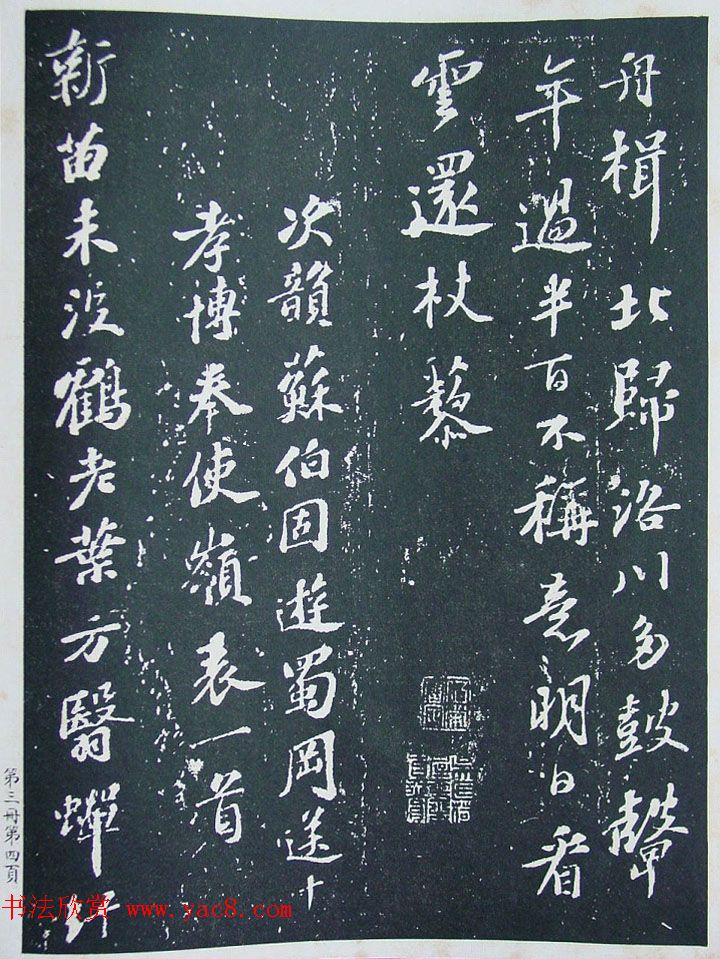 舟楫北歸洛川多鼓鼙
年過半百不稱意明日看
雲還杖藜
次韻蘇伯固遊蜀岡送
孝博奉使嶺表一首
新苗未没鶴老葉方翳蟬
第三冊第四頁
书法欣赏 www.yac8.com